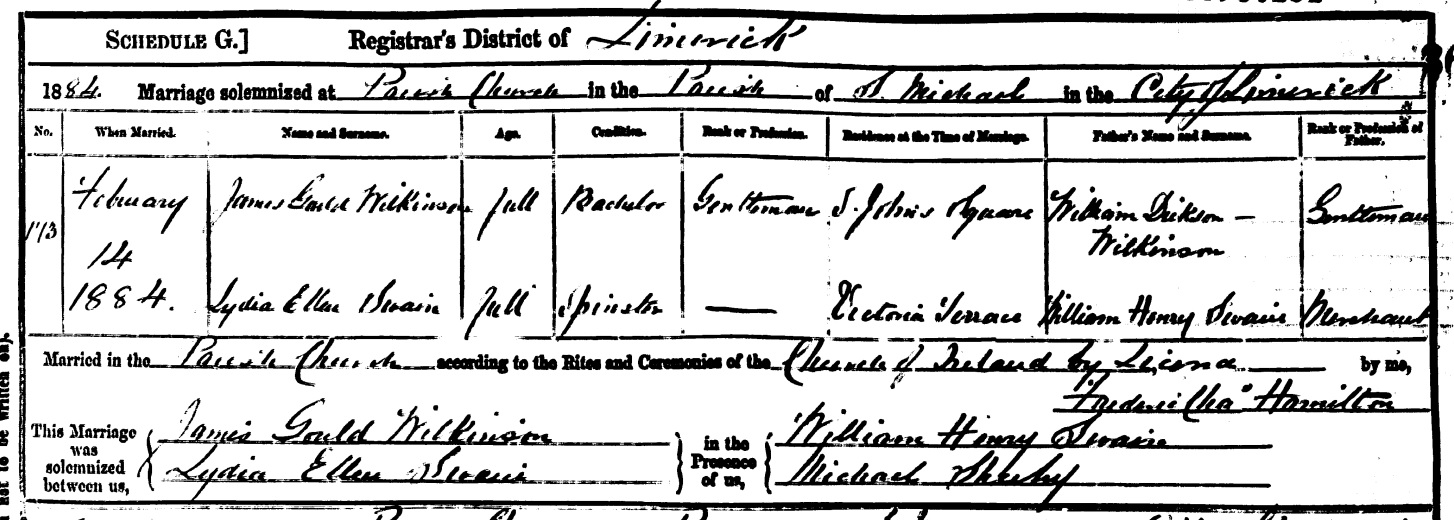 SCHEDULE G.] Registrar's District of Limerick
1884. Marriage solemnized at Parish Church in the Parish of St. Michael in the City of Limerick
No. When Married. Name and Surname. Age. Condition. Rank or Profession. Residence at the Time of Marriage. Father's Name and Surname. Rank or Profession of Father.
173 February 14 1884. James Gould Wilkinson Full Bachelor Gentleman St. John's Square William Dickson - Wilkinson Gentleman
Lydia Ellen Swain Full Spinster — Victoria Terrace William Henry Swain Merchant
Married in the Parish Church according to the Rites and Ceremonies of the Church of Ireland by License by me,
Frederic Chas Hamilton
This Marriage was solemnized between us, James Gould Wilkinson in the Presence of us, William Henry Swain
Lydia Ellen Swain Michael Sheehy
not to be written on).